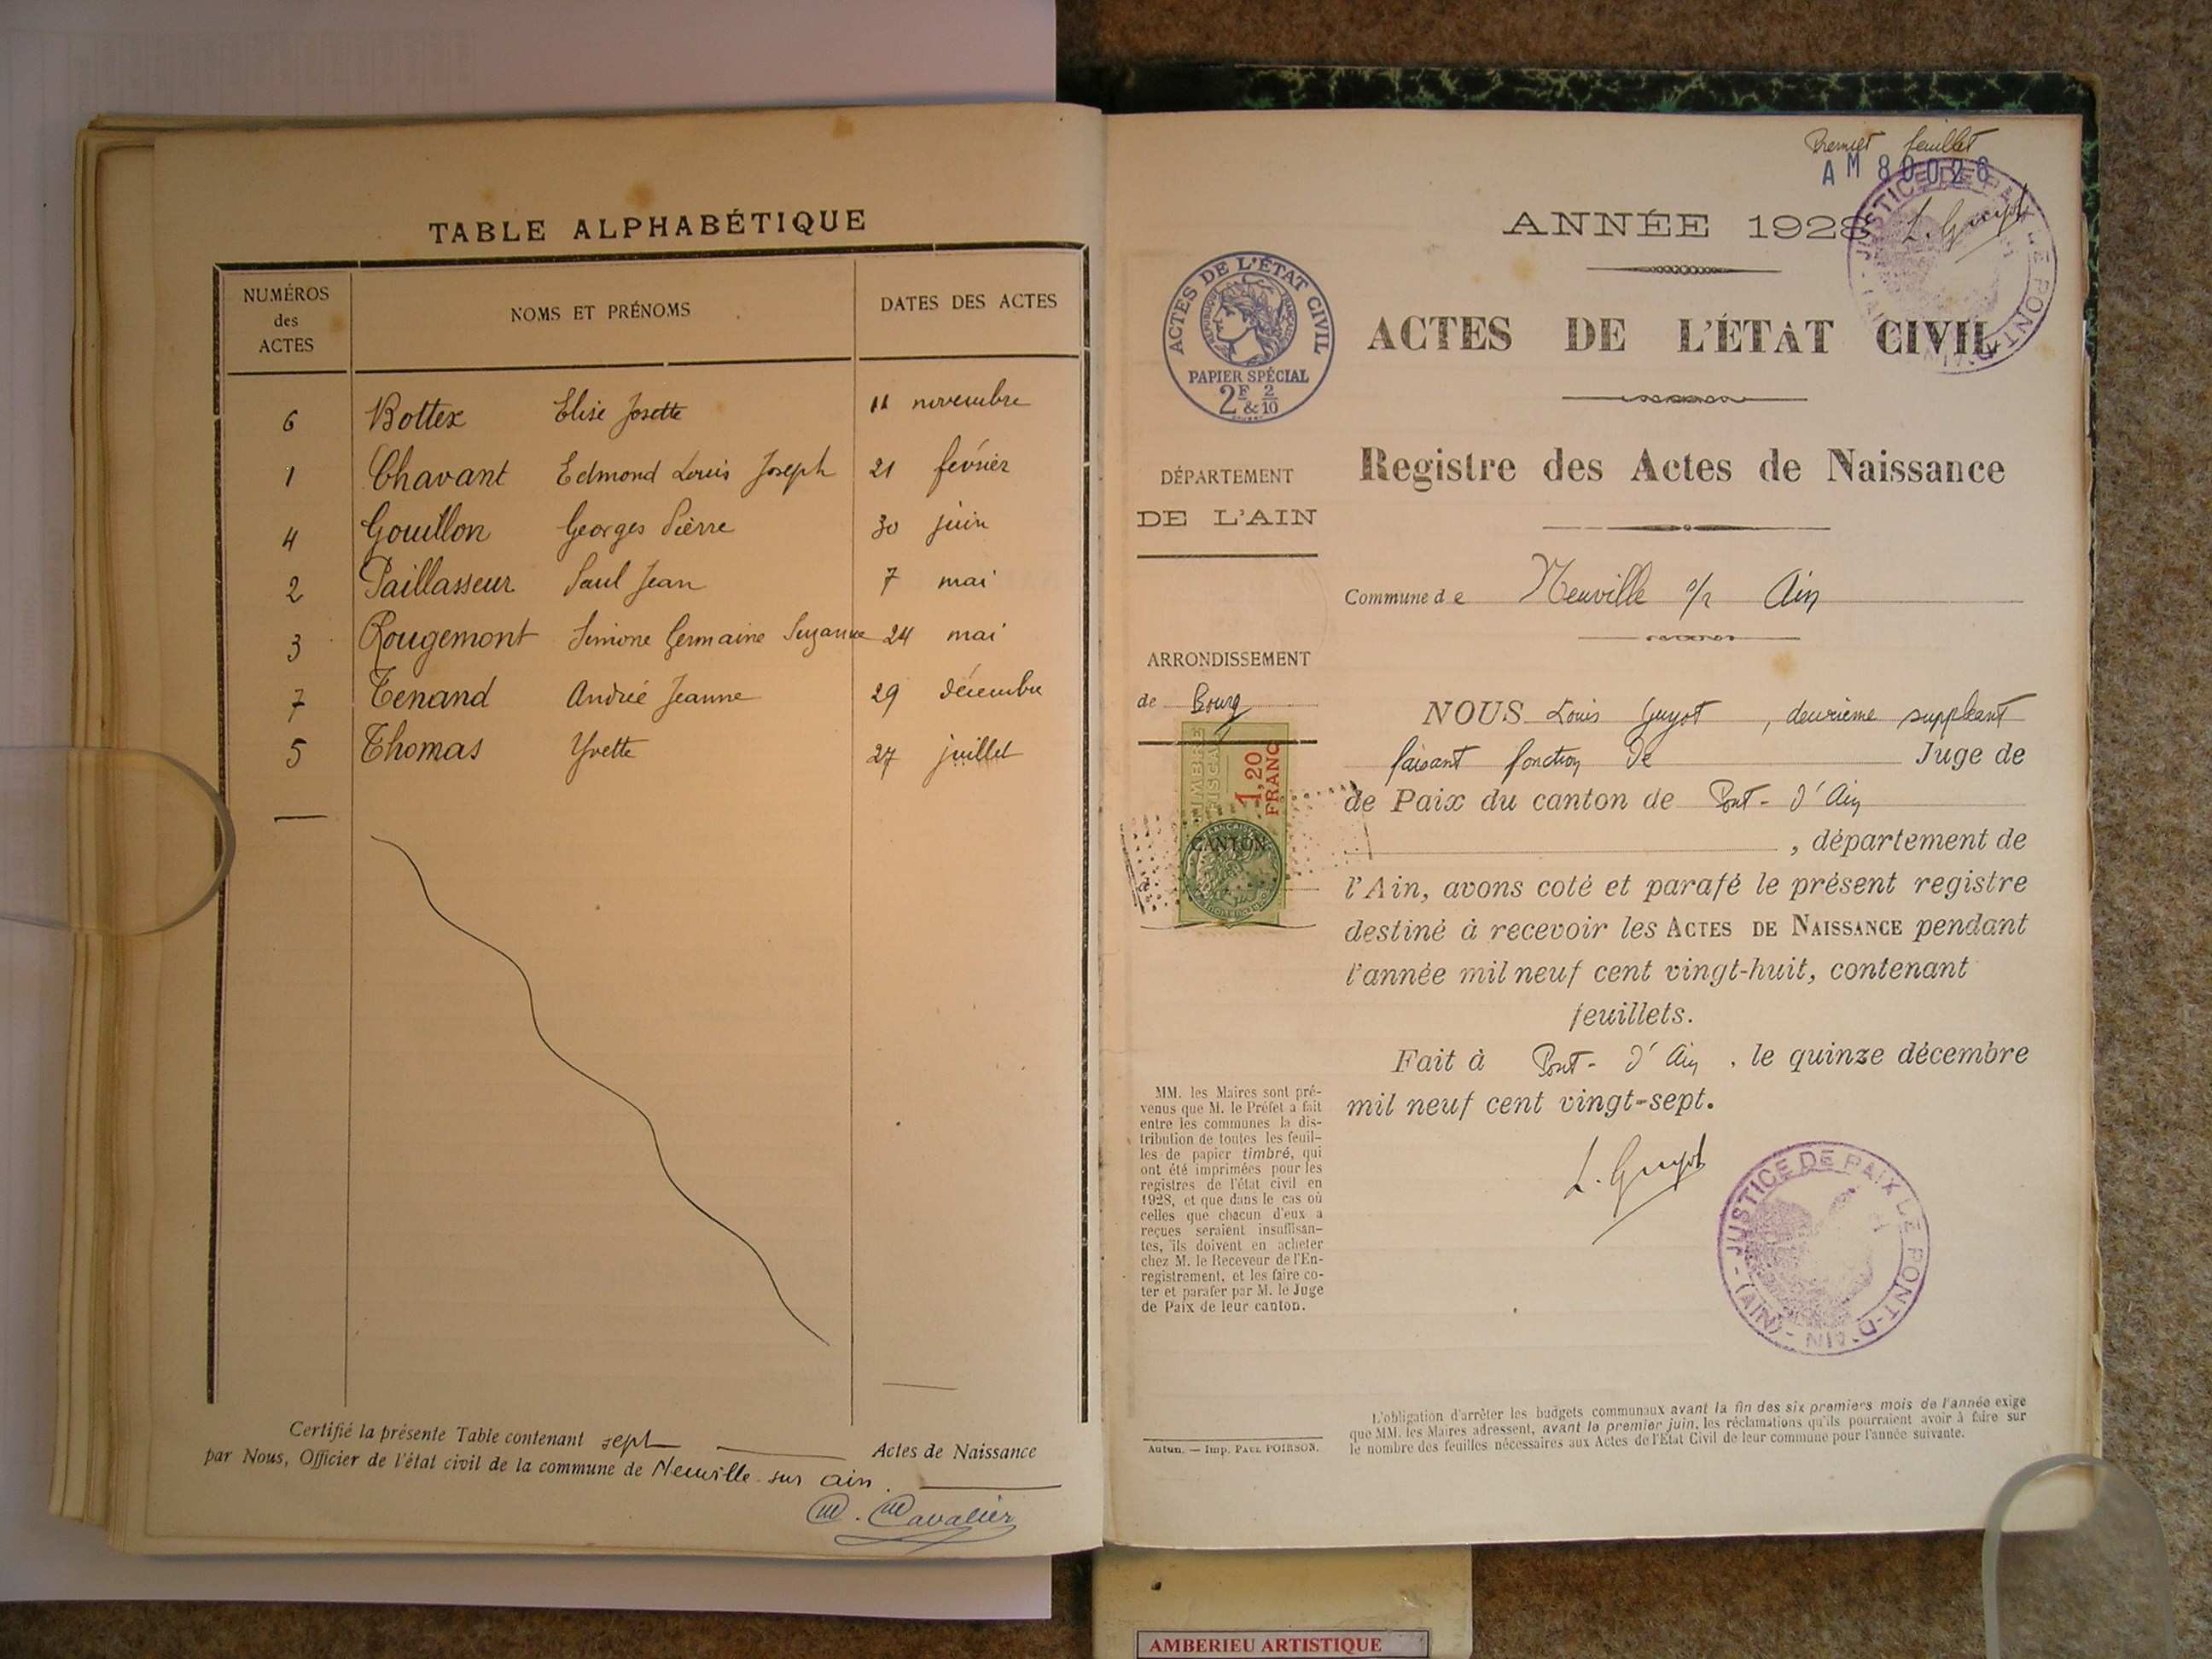 TABLE ALPHABÉTIQUE
NUMÉROS des ACTES NOMS ET PRÉNOMS DATES DES ACTES
6 Bottex Elise Josette 11 novembre
1 Chavant Edmond Louis Joseph 21 février
4 Gouillon Georges Pierre 30 juin
2 Paillasseur Paul Jean 7 mai
3 Rougemont Simone Germaine Suzanne 24 mai
7 Tenand Andrée Jeanne 29 décembre
5 Thomas Yvette 27 juillet
Certifié la présente Table contenant sept Actes de Naissance
par Nous, Officier de l'état civil de la commune de Neuville sur ain.
Cavalier
Premier feuillet
AM 80026
L. Guyot
JUSTICE DE PAIX LE PONT-D'AIN - (AIN) -
ANNÉE 1928
ACTES DE L'ÉTAT CIVIL
RÉPUBLIQUE FRANÇAISE
PAPIER SPÉCIAL
2F & 2/10
ACTES DE L'ÉTAT CIVIL
Registre des Actes de Naissance
DÉPARTEMENT
DE L'AIN
Commune de Neuville s/r Ain
ARRONDISSEMENT
de Bourg
TIMBRE FISCAL
1,20 FRANC
CANTON
NOUS Louis Guyot, deuxième suppléant
faisant fonction de Juge de
de Paix du canton de Pont-d'Ain
, département de
l'Ain, avons coté et parafé le présent registre
destiné à recevoir les ACTES DE NAISSANCE pendant
l'année mil neuf cent vingt-huit, contenant
feuillets.
Fait à Pont-d'Ain, le quinze décembre
mil neuf cent vingt-sept.
L. Guyot
JUSTICE DE PAIX LE PONT-D'AIN - (AIN) -
MM. les Maires sont pré-
venus que M. le Préfet a fait
entre les communes la dis-
tribution de toutes les feuil-
les de papier timbré, qui
ont été imprimées pour les
registres de l'état civil en
1928, et que dans le cas où
celles que chacun d'eux a
reçues seraient insuffisan-
tes, ils doivent en acheter
chez M. le Receveur de l'En-
registrement, et les faire co-
ter et parafer par M. le Juge
de Paix de leur canton.
Autun. — Imp. PAUL POIRSON.
L'obligation d'arrêter les budgets communaux avant la fin des six premiers mois de l'année exige
que MM. les Maires adressent, avant le premier juin, les réclamations qu'ils pourraient avoir à faire sur
le nombre des feuilles nécessaires aux Actes de l'État Civil de leur commune pour l'année suivante.
AMBERIEU ARTISTIQUE